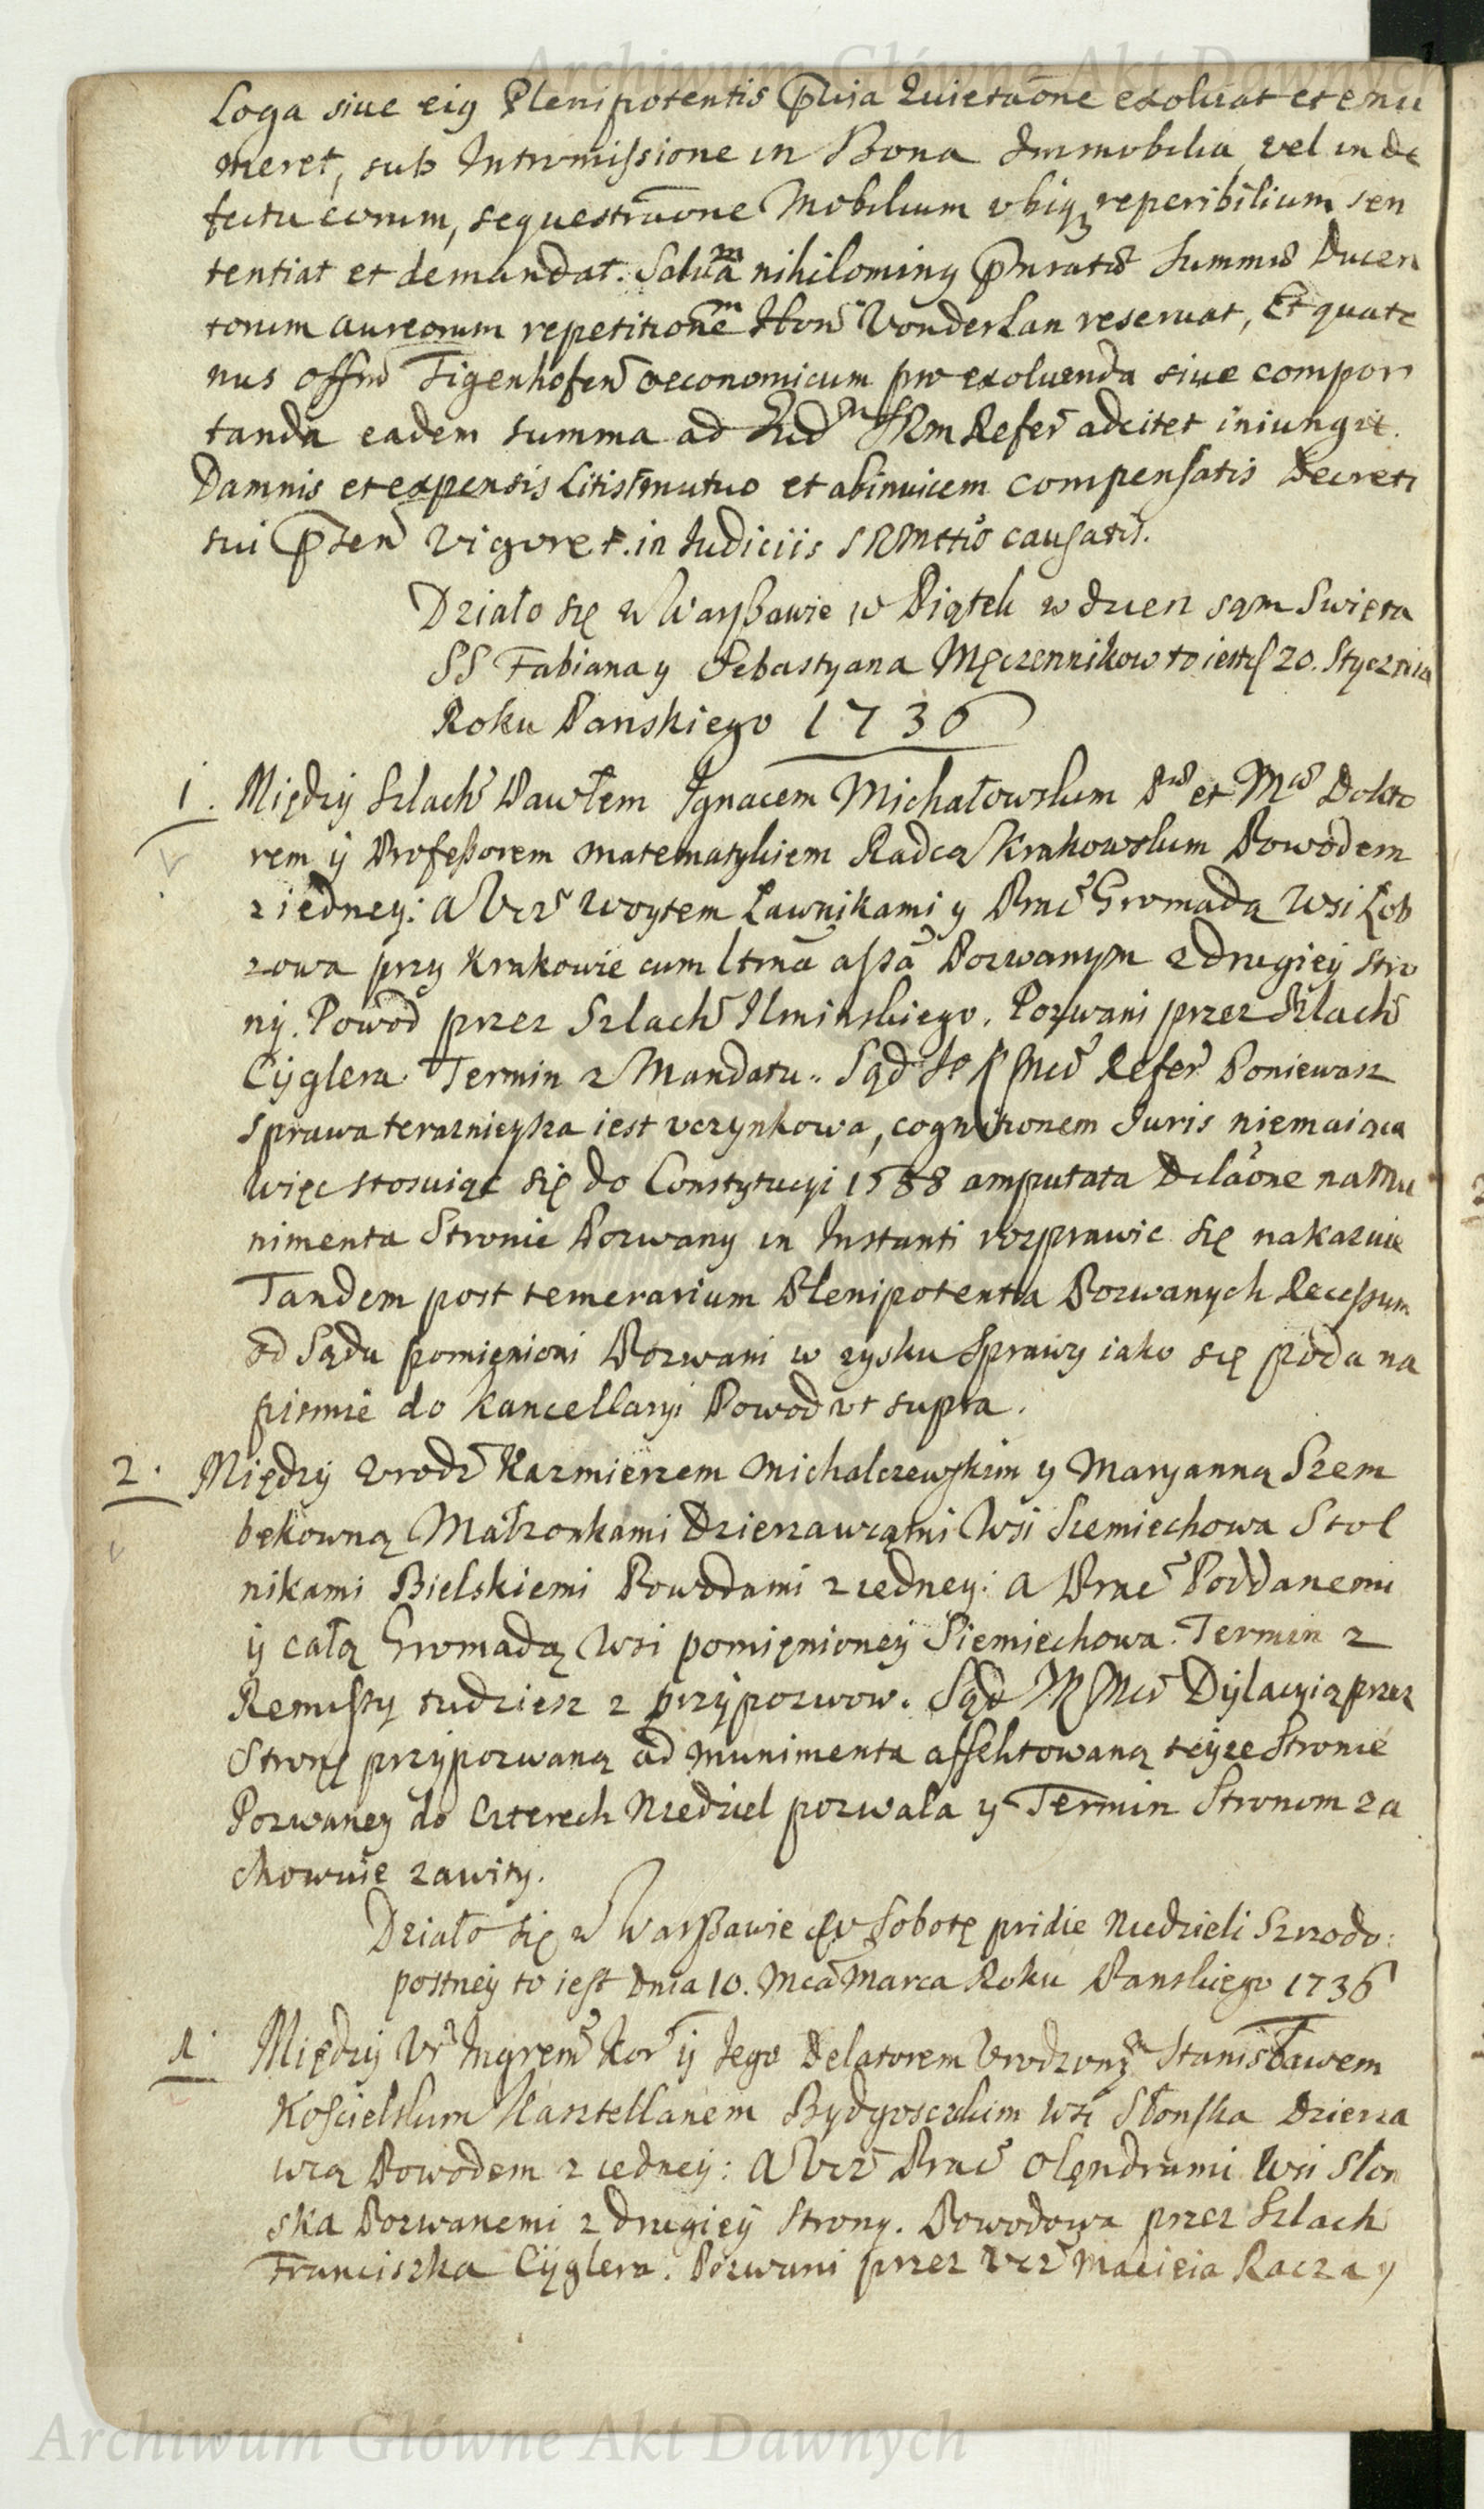 Archiwum Główne Akt Dawnych
1
Loga siue eig Plenipotentis pvia Quietaōne exoluat et enu
meret, sub Intromissione in Bona Immobilia vel in de
fectu eorum, sequestraōne Mobilium vbiqz reperibilium sen
tentiat et demandat. Saluam nihilominy Summis Ducen
torum aureorum repetitionem Vonderlan reseruat, Et quate
nus offm Tigenhofen oeconomicum pro exoluenda siue compor
tanda eadem summa ad Jud SRM Refer adcitet iniungit.
Damnis et expensis Litis mutuo et abinuicem compensatis Decreti
sui pnsen vigore. in Judiciis SRMttis causatis.
Działo się w Warszawie w Piątek w dzien sąm Swięta
SS Fabiana y Sebastyana Męczennikow to iest 20. Stycznia
Roku Panskiego 1736
1. Między Szlach Pawłem Ignacem Michałowskim Ph et M Dokto
rem ÿ Professorem matematykiem Radcą Krakowskim Powodem
z iedney: a Vcz woytem Ławnikami y Prac Gromadą Wsi Łob
zowa przy Krakowie cum ltma assa Pozwanym z drugiey stro
ny. Powod przez Szlach Ilminskiego. Pozwani przez Szlach
Cÿglera Termin z Mandatu. Sąd Refer Poniewasz
sprawa teraznieysza iest vczynkowa, cognitionem Juris niemaiąca
więc stosuiąc się do Constytucyi 1588 amputata Dilaōne na Mu
nimenta Stronie Pozwany in Instanti rozprawic się nakazuie
Tandem post temerarium Plenipotenta Pozwanych Recessum
od Sądu pomięnioni Pozwani w zysku sprawy iako się poda na
pismie do kancellaryi Powod vt supra.
2. Między Vrodz Kazmierzem Michalczewskim y Maryanną Szem
bekowną Małzonkami Dzierzawcami Wsi Siemiechowa Stol
nikami Bielskiemi Powodami z iedney: a Prac Poddanemi
ÿ całą Gromadą Wsi pomięnioney Siemiechowa. Termin z
Remissy tudziesz z przypozwow. Sąd Dÿlacyią przez
Stronę przypozwaną ad munimenta affektowaną teyze Stronie
Pozwaney do Czterech Niedziel pozwala y Termin Stronom za
chowuie zawity.
Działo się w Warszawie w Sobotę pridie Niedzieli Szrzodo:
postney to iest Dnia 10. Mca Marca Roku Panskiego 1736
1. Między Vr Ingrem Kor ÿ Jego Delatorem Vrodzonym Stanisławem
Koscielskim Kasztellanem Bydgosczkim Wsi Słonska Dzierza
wcą Powodem z iedney: a Vcz Prac Olęndrami Wsi Słon
ska Pozwanemi z drugiey Strony. Powodowa przez Szlach
Franciszka Cÿglera. Pozwani przez Vcz Macieia Racza y
Archiwum Główne Akt Dawnych